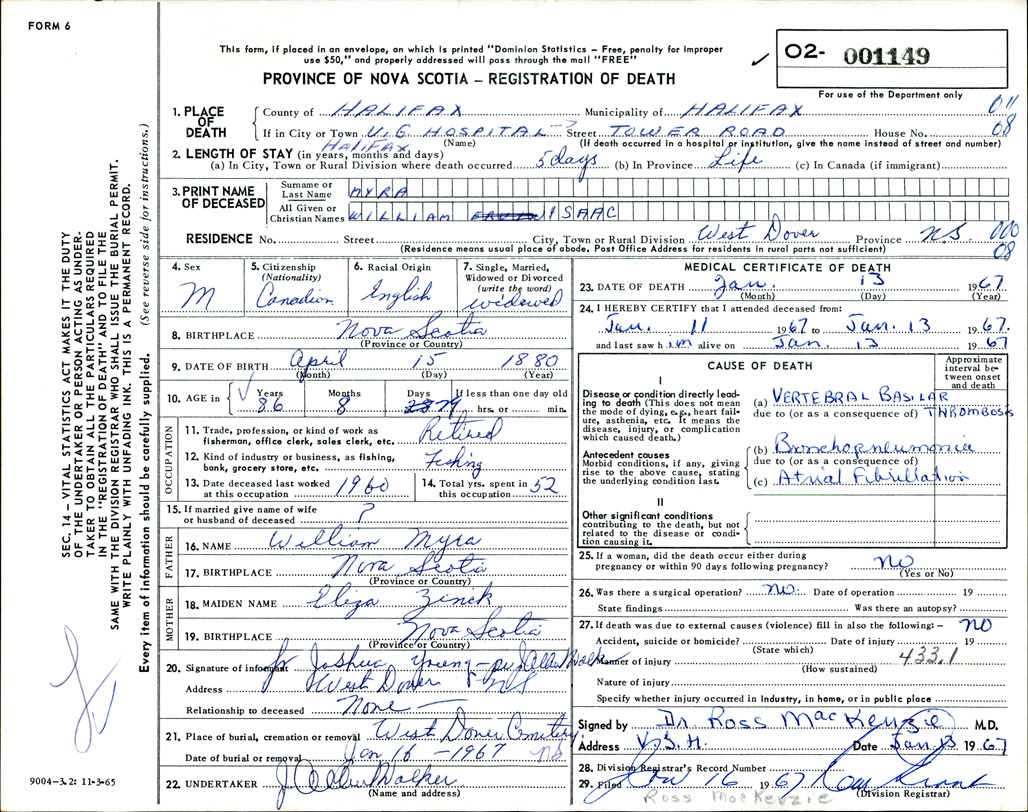 FORM 6
This form, if placed in an envelope, on which is printed "Dominion Statistics – Free, penalty for improper
use $50," and properly addressed will pass through the mail "FREE"
PROVINCE OF NOVA SCOTIA – REGISTRATION OF DEATH
✓ O2- 001149
For use of the Department only
1. PLACE OF DEATH
County of HALIFAX Municipality of HALIFAX 011
If in City or Town V.G. HOSPITAL Street TOWER ROAD House No. 08
HALIFAX (Name) (If death occurred in a hospital or institution, give the name instead of street and number)
2. LENGTH OF STAY (in years, months and days)
(a) In City, Town or Rural Division where death occurred 5 days (b) In Province Life (c) In Canada (if immigrant)
3. PRINT NAME OF DECEASED
Surname or Last Name MYRA
All Given or Christian Names WILLIAM ISAAC
RESIDENCE No. Street City, Town or Rural Division West Dover Province N.S. 000
(Residence means usual place of abode. Post Office Address for residents in rural parts not sufficient) 08
4. Sex M
5. Citizenship (Nationality) Canadian
6. Racial Origin English
7. Single, Married, Widowed or Divorced (write the word) widowed
8. BIRTHPLACE Nova Scotia
(Province or Country)
9. DATE OF BIRTH April 15 1880
(Month) (Day) (Year)
10. AGE in ✓ Years 86 Months 8 Days 29 If less than one day old hrs. or min.
OCCUPATION
11. Trade, profession, or kind of work as fisherman, office clerk, sales clerk, etc. Retired
12. Kind of industry or business, as fishing, bank, grocery store, etc. Fishing
13. Date deceased last worked at this occupation 1960
14. Total yrs. spent in this occupation 52
15. If married give name of wife or husband of deceased ?
FATHER
16. NAME William Myra
17. BIRTHPLACE Nova Scotia
(Province or Country)
MOTHER
18. MAIDEN NAME Eliza Zinck
19. BIRTHPLACE Nova Scotia
(Province or Country)
20. Signature of informant Joshua Young
Address West Dover NS
Relationship to deceased None
21. Place of burial, cremation or removal West Dover Cemetery
Date of burial or removal Jan 16 – 1967 NS
22. UNDERTAKER J Allen Walker
(Name and address)
MEDICAL CERTIFICATE OF DEATH
23. DATE OF DEATH Jan. 13 1967
(Month) (Day) (Year)
24. I HEREBY CERTIFY that I attended deceased from:
Jan. 11 1967 to Jan. 13 1967.
and last saw him alive on Jan. 13 1967
CAUSE OF DEATH
Approximate interval between onset and death
I
Disease or condition directly leading to death (This does not mean the mode of dying, e.g., heart failure, asthenia, etc. It means the disease, injury, or complication which caused death.)
(a) VERTEBRAL BASILAR
due to (or as a consequence of) THROMBOSIS
Antecedent causes
Morbid conditions, if any, giving rise to the above cause, stating the underlying condition last.
(b) Bronchopneumonia
due to (or as a consequence of)
(c) Atrial Fibrillation
II
Other significant conditions
contributing to the death, but not related to the disease or condition causing it.
25. If a woman, did the death occur either during pregnancy or within 90 days following pregnancy? NO
(Yes or No)
26. Was there a surgical operation? NO. Date of operation 19
State findings Was there an autopsy?
27. If death was due to external causes (violence) fill in also the following: – NO
Accident, suicide or homicide? Date of injury 19
(State which)
Manner of injury 433.1
(How sustained)
Nature of injury
Specify whether injury occurred in Industry, in home, or in public place
Signed by Dr. Ross MacKenzie M.D.
Address V.G.H. Date Jan 13 1967
28. Division Registrar's Record Number
29. Filed Jan 16 1967
(Division Registrar)
Ross MacKenzie
SEC. 14 – VITAL STATISTICS ACT MAKES IT THE DUTY
OF THE UNDERTAKER OR PERSON ACTING AS UNDER-
TAKER TO OBTAIN ALL THE PARTICULARS REQUIRED
IN THE "REGISTRATION OF DEATH" AND TO FILE THE
SAME WITH THE DIVISION REGISTRAR WHO SHALL ISSUE THE BURIAL PERMIT.
WRITE PLAINLY WITH UNFADING INK. THIS IS A PERMANENT RECORD.
Every item of information should be carefully supplied. (See reverse side for instructions.)
9004–3.2: 11-3-65